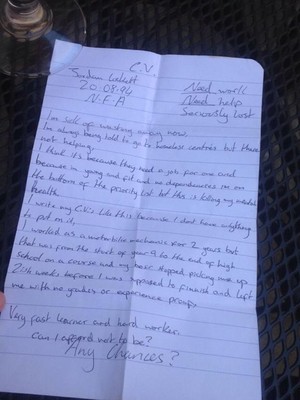 C.V.
Jordan
20:08:94
N.F.A
Need work
Need help
Seriously Lost
I'm sick of wasting away now
I'm always being told to go to homeless centres but there
not helping.
I think its because they need a job for one and
because im young and fit and no dependancies im on
the bottom of the priority list but this is killing my mental
health
I write my C.V.s like this because I dont have anything
to put on it,
I worked as a motorbike mechanic for 2 years but
that was from the start of year 9 to the end of high
school on a course and my boss stopped picking me up
2 weeks before I was supposed to finnish and left
me with no grades or experience proofs.
Very fast learner and hard worker.
can I afford not to be?
Any Chances?